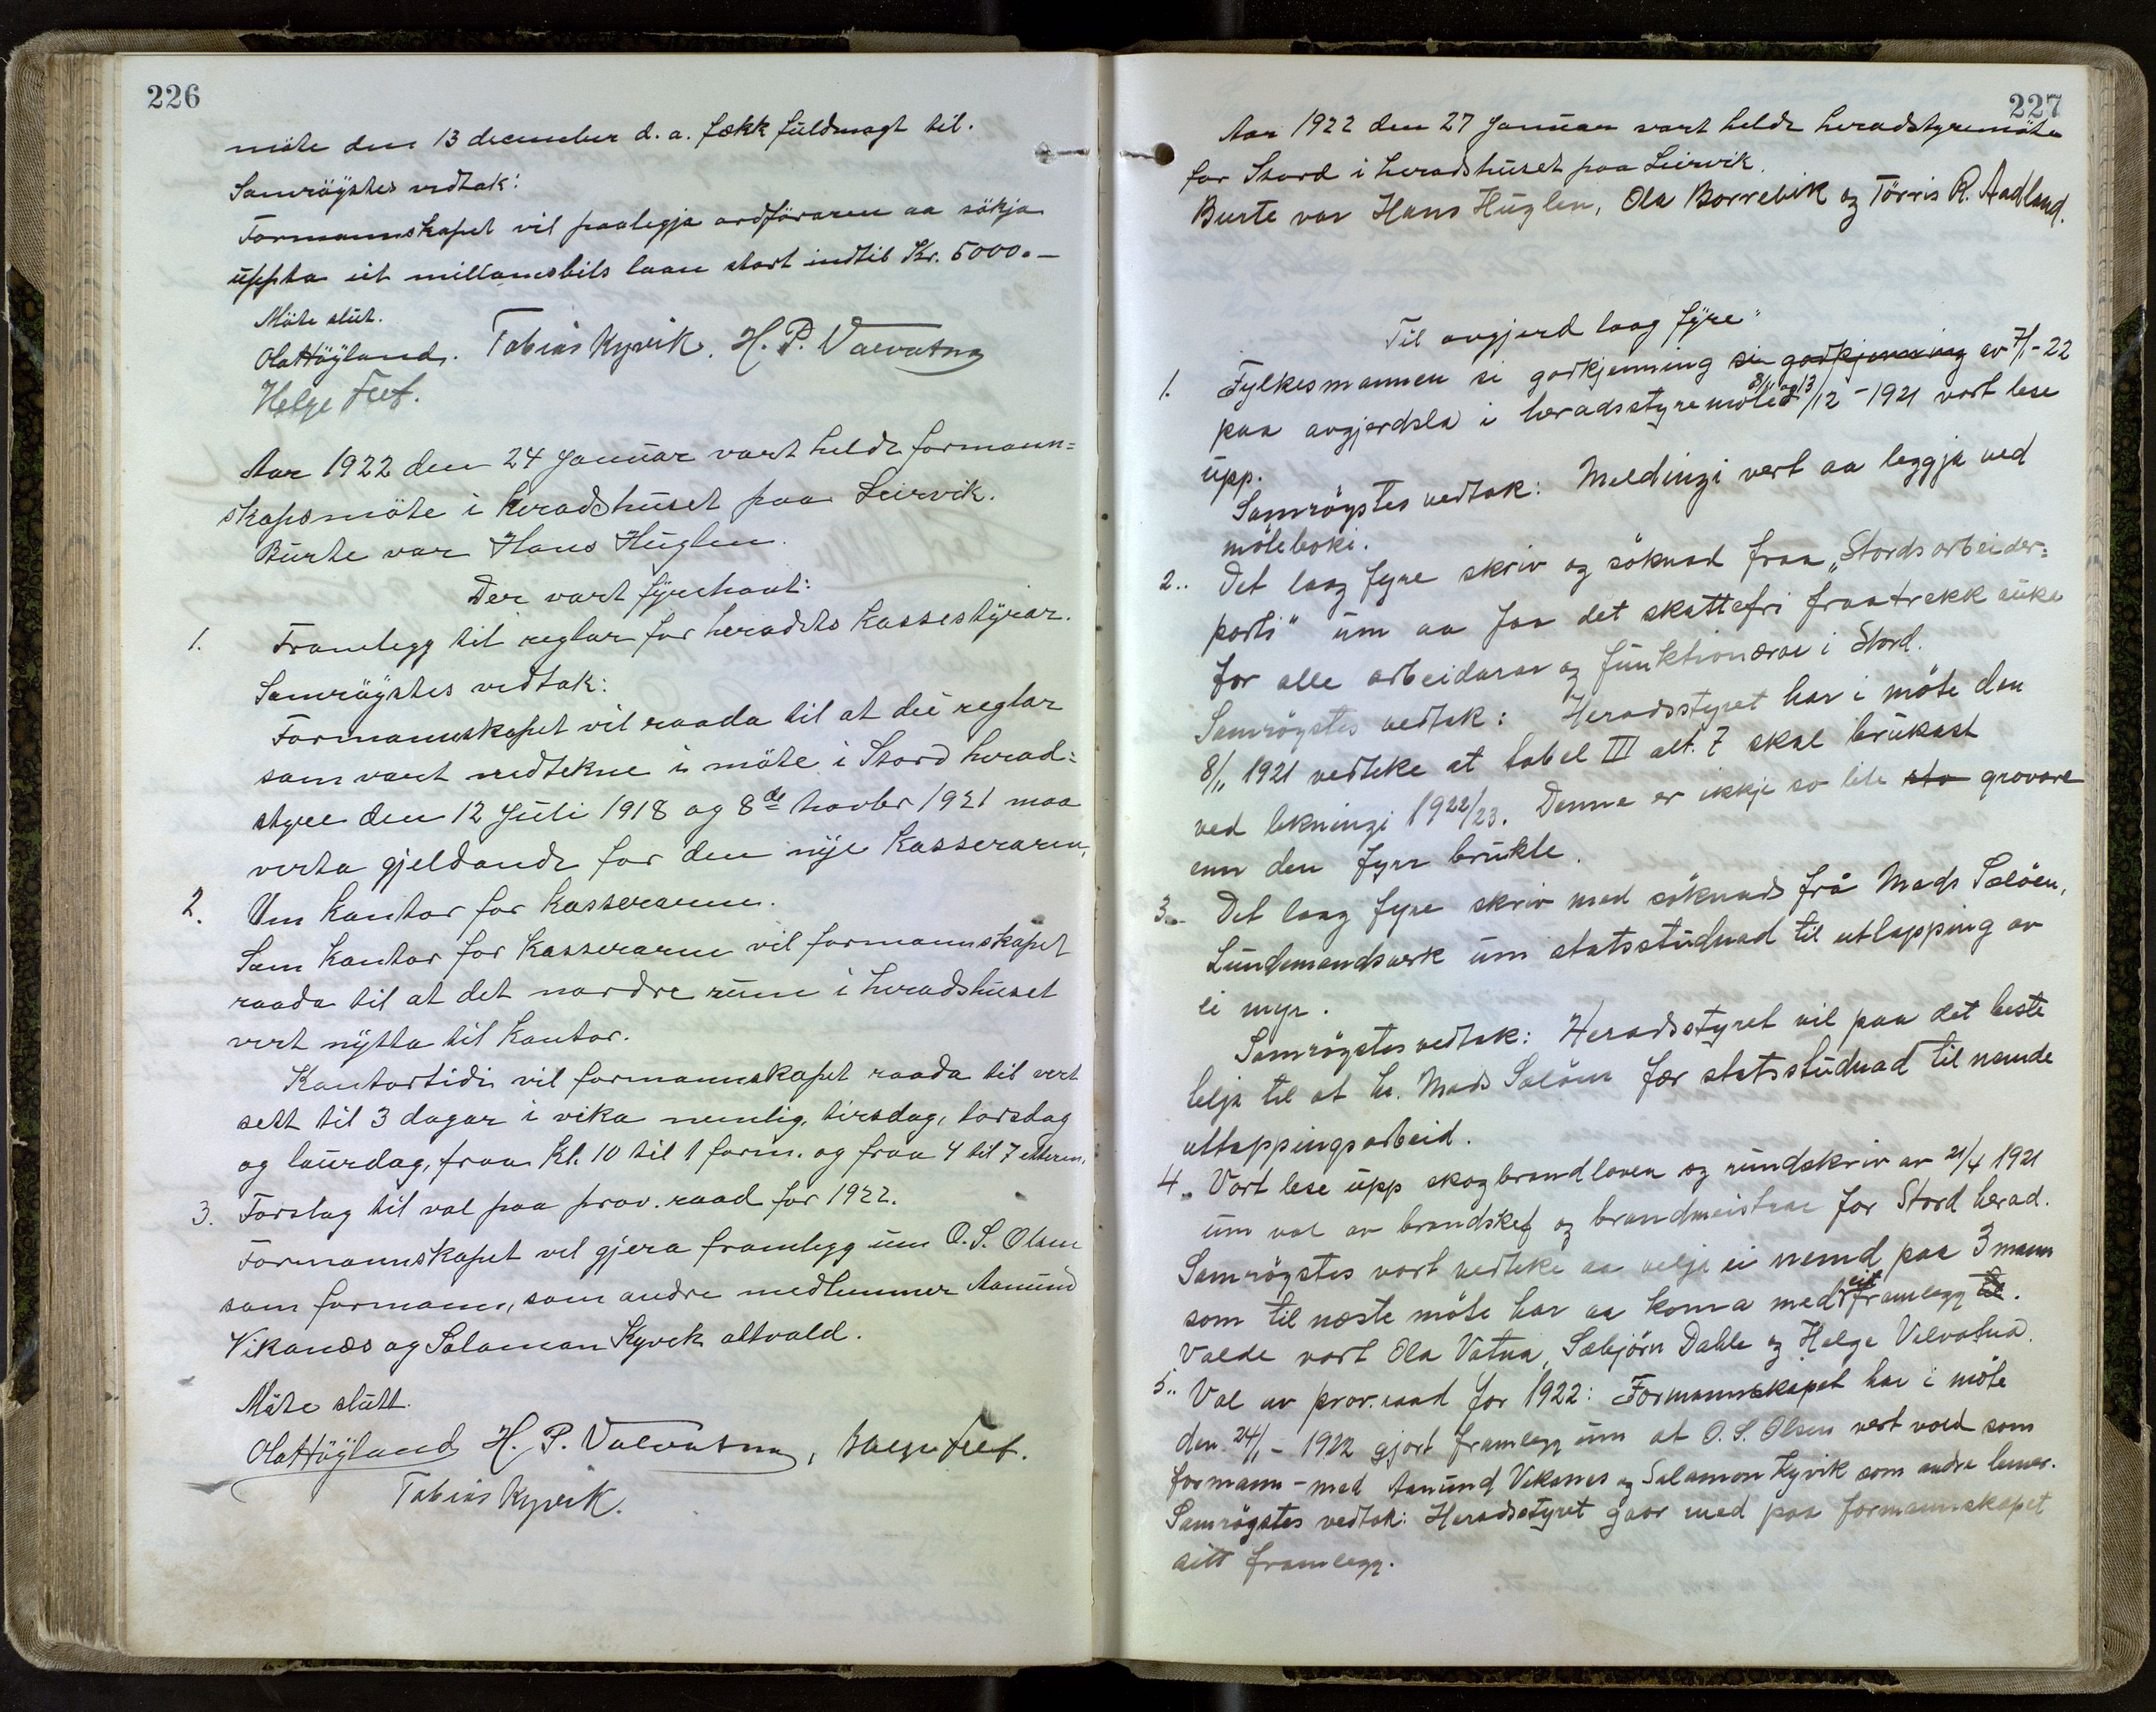 226
möte den 13 december d. a. fekk fuldmagt til.
Samröystes vedtak:
Formannskapet vil paalegja ordföraren aa sökja
uppta eit millomsbils laan stort indtil Kr. 5000.-
Möte slut.
Ola Höyland. Tobias Kyvik. H. P. Valvatna
Helge Feet.
Aar 1922 den 24 Januar vart helde formann=
skapsmöte i heradshuset paa Leirvik.
Burte var Hans Huglen.
Der vart fyrehavt:
1. Framlegg til reglar for heradets kassestyrar.
Samröystes vedtak:
Formannskapet vil raada til at dei reglar
som vart vedtekne i möte i Stord herad=
styre den 12 Juli 1918 og 8de novbr 1921 maa
verta gjeldande for den nye kasseraren,
2. Um kontor for kasseraren.
Som kontor for kasseraren vil formannskapet
raada til at det nordre rum i heradshuset
vert nytta til kontor.
Kontortidi vil formannskapet raada til vert
sett til 3 dagar i vika nemlig, tirsdag, torsdag
og laurdag, fraa Kl. 10 til 1 form. og fraa 4 til 7 etterm.
3. Forslag til val paa prov. raad for 1922.
Formannskapet vil gjera framlegg um O. S. Olsen
som formann, som andre medlemmer Aamund
Vikanes og Salamon Kyvik attvald.
Möte slutt.
Ola Höyland H. P. Valvatna, Helge Feet.
Tobias Kyvik.
227
Aar 1922 den 27 Januar vart helde heradstyremöte
for Stord i heradshuset paa Leirvik.
Burte var Hans Huglen, Ola Borrevik og Törris R. Aadland.
Til avgjerd laag fyre"
1. Fylkesmannen si godkjenning sin godkjenning av 7/1-22
paa avgjerdsla i heradsstyremöte 8/11 og 13/12-1921 vart lese
upp.
Samröystes vedtak: Meldingi vert aa leggja ved
möteboki.
2.. Det laag fyre skriv og söknad fraa „Stords arbeider=
parti" um aa faa det skattefri fraatrekk auka
for alle arbeidarar og funktionærar i Stord.
Samröystes vedtak: Heradsstyret har i möte den
8/11 1921 vedteke at tabel III alt. 7 skal brukast
ved likningi 1922/23. Denne er ikkje so lite sto grovare
enn den fyrr brukte.
3.. Det laag fyre skriv med söknad frå Mads Sælöen,
Lundemandsverk um statsstudnad til uttapping av
ei myr.
Samröystes vedtak: Heradsstyret vil paa det beste
telja til at hr. Mads Sælöen fær statsstudnad til nemde
uttappingsarbeid.
4.. Vart lese upp skogbrandloven og rundskriv av 21/4 1921
um val av brandskef og brandmeistrar for Stord herad.
Samröystes vart vedteke aa velja ei nemd paa 3 mann
som til næste möte har aa koma med eit framlegg til.
Valde vart Ola Vatna, Sæbjörn Dahle og Helge Valvatna.
5.. Val av prov. raad for 1922: Formannskapet har i möte
den 24/1 - 1922 gjort framlegg um at O. S. Olsen vert vald som
formann - med Aamund Vikanes og Salamon Kyvik som andre lemer.
Samröystes vedtak: Heradsstyret gaar med paa formannskapet
sitt framlegg.